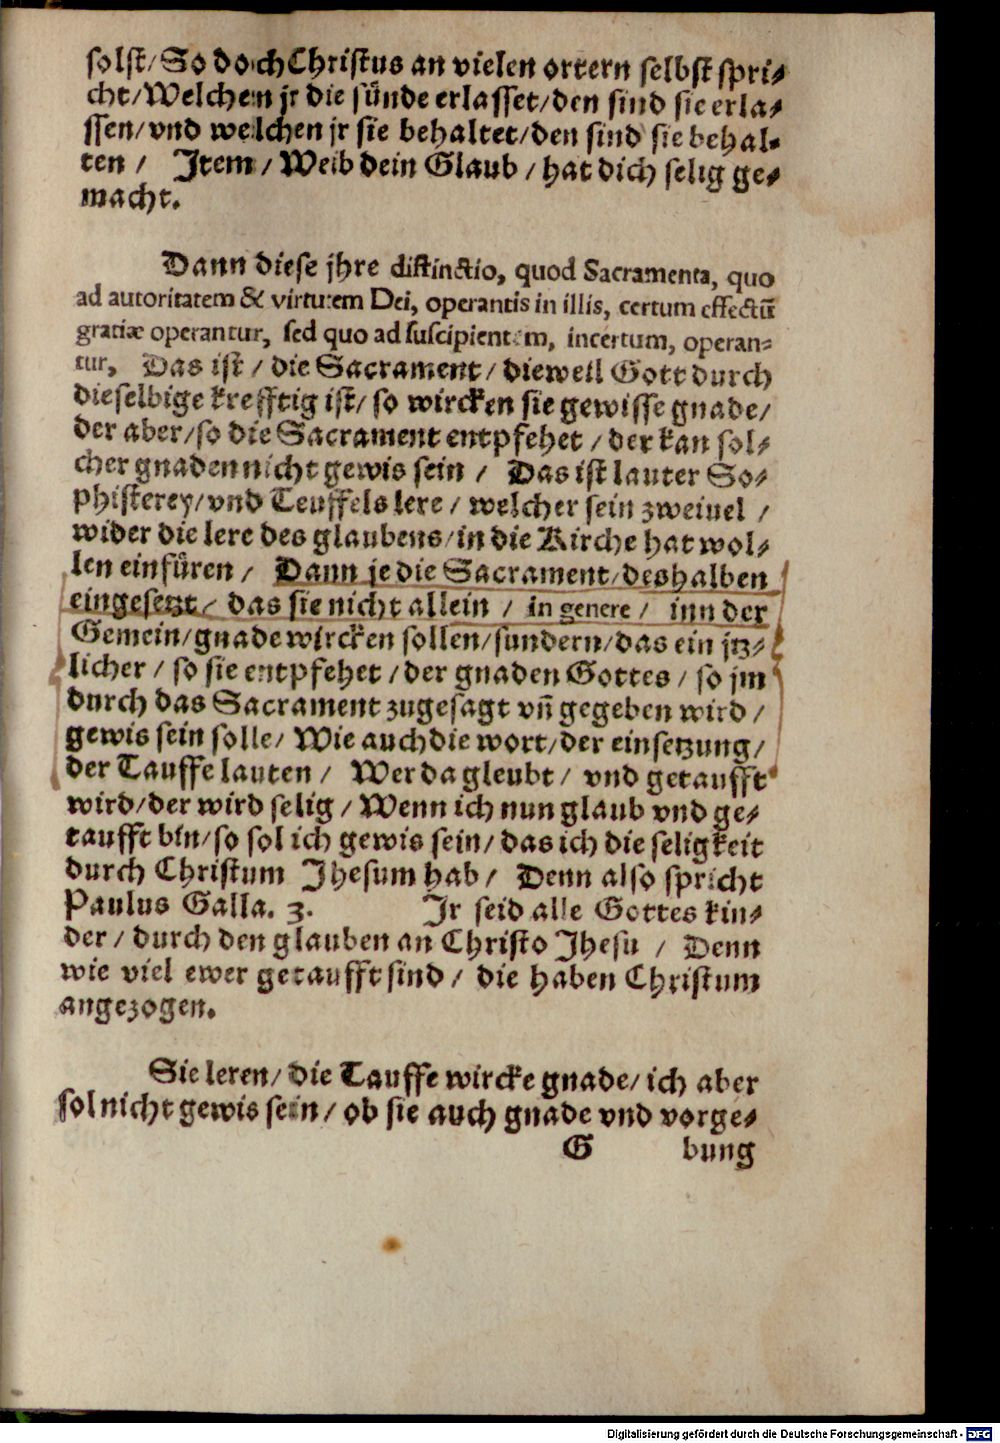 solst/ So doch Christus an vielen ortern selbst spri⸗
cht/ Welchen jr die sünde erlasset/ den sind sie erla⸗
ssen/ vnd welchen jr sie behaltet/ den sind sie behal⸗
ten / Item / Weib dein Glaub / hat dich selig ge⸗
macht.
Dann diese jhre distinctio, quod Sacramenta, quo
ad autoritatem & virtutem Dei, operantis in illis, certum effectū
gratiæ operantur, sed quo ad suscipientem, incertum, operan⸗
tur, Das ist / die Sacrament / dieweil Gott durch
dieselbige krefftig ist/ so wircken sie gewisse gnade/
der aber/ so die Sacrament entpfehet / der kan sol⸗
cher gnaden nicht gewis sein / Das ist lauter So⸗
phisterey/ vnd Teuffels lere / welcher sein zweiuel /
wider die lere des glaubens/ in die Kirche hat wol⸗
len einfüren / Dann je die Sacrament/ deshalben
eingesetzt / das sie nicht allein / in genere / inn der
Gemein/ gnade wircken sollen/ sundern/ das ein jtz⸗
licher / so sie entpfehet / der gnaden Gottes / so jm
durch das Sacrament zugesagt vñ gegeben wird /
gewis sein solle/ Wie auch die wort/ der einsetzung/
der Tauffe lauten / Wer da gleubt / vnd getaufft
wird/ der wird selig / Wenn ich nun glaub vnd ge⸗
taufft bin/ so sol ich gewis sein/ das ich die seligkeit
durch Christum Jhesum hab/ Denn also spricht
Paulus Galla. 3. Ir seid alle Gottes kin⸗
der / durch den glauben an Christo Jhesu / Denn
wie viel ewer getaufft sind / die haben Christum
angezogen.
Sie leren/ die Tauffe wircke gnade/ ich aber
sol nicht gewis sein/ ob sie auch gnade vnd vorge⸗
G bung
Digitalisierung gefördert durch die Deutsche Forschungsgemeinschaft - DFG